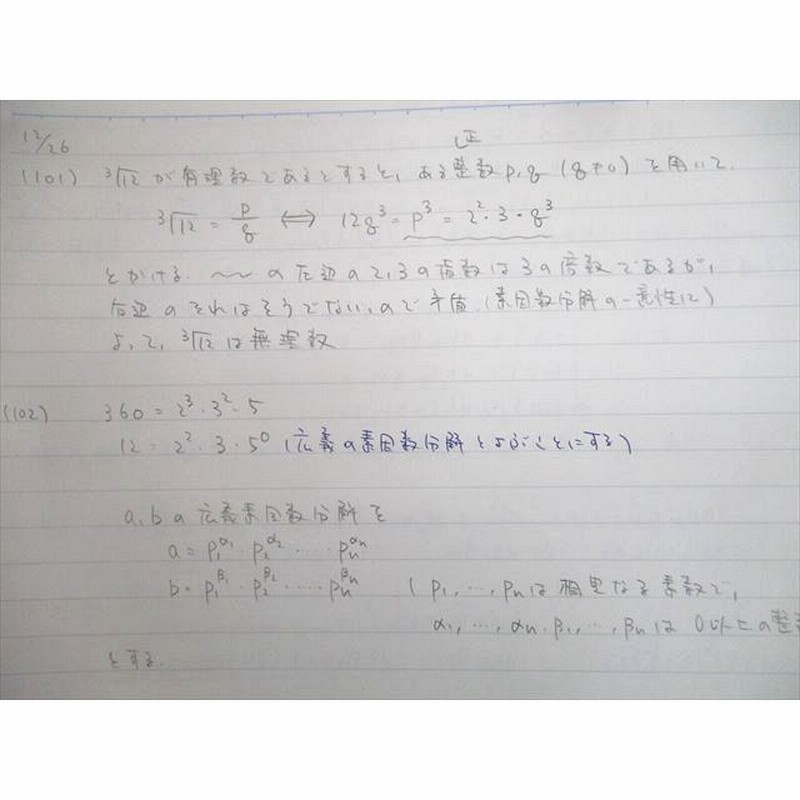 12/26
正
(101) ∛12 が有理数であるとすると, ある整数 p, q (q≠0) を用いて,
∛12 = p/q ⟺ 12q³ = p³ = 2²・3・q³
とかける. 〜〜 の左辺の2,3の指数は3の倍数であるが,
右辺のそれはそうでない, ので矛盾. (素因数分解の一意性に)
よって, ∛12 は無理数
(102) 360 = 2³・3²・5
12 = 2²・3・5⁰ (広義の素因数分解とよぶことにする)
a, b の広義素因数分解を
a = p₁^α₁・p₂^α₂ ‥‥ pₙ^αₙ
b = p₁^β₁・p₂^β₂ ‥‥ pₙ^βₙ ( p₁, …, pₙ は相異なる素数で,
α₁, …, αₙ, β₁, …, βₙ は 0以上の整
とする.